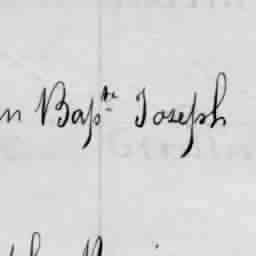 n Bapte Joseph